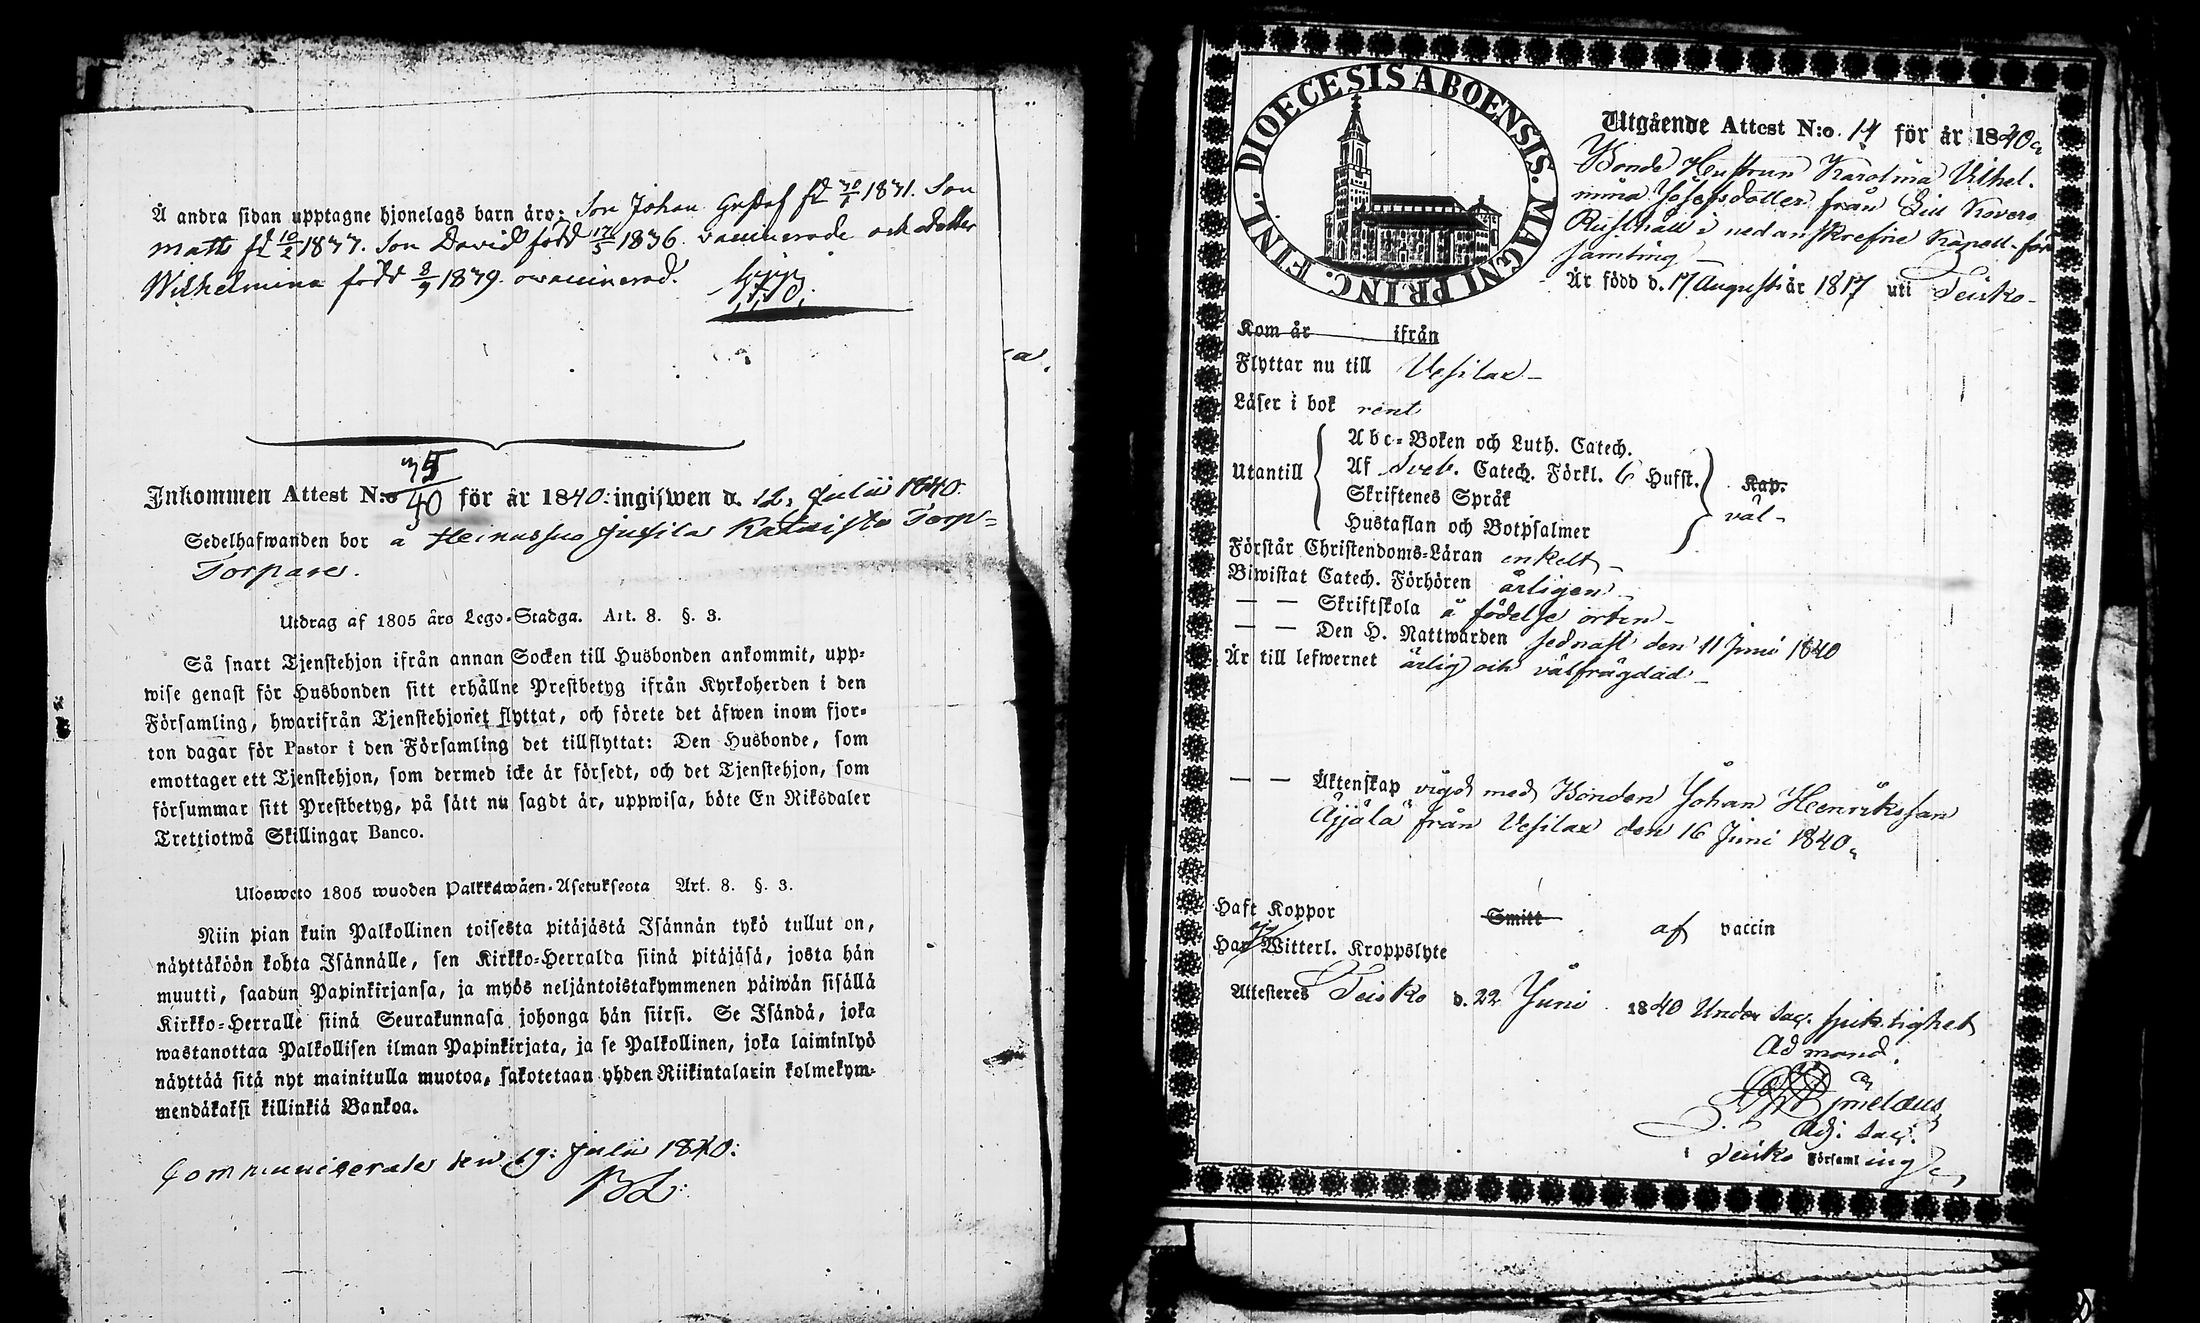 Å andra sidan upptagne hjonelags barn äro: Son Johan Gustaf fd 30/1 1831. Son
Matts fd 10/2 1833. Son David född 17/5 1836. vaccinerade och dotter
Wilhelmina född 8/9 1839. ovaccinerad.
Inkommen Attest N:o 35/40 för år 1840: ingifwen d. 12. Julii 1840.
Sedelhafwanden bor å Heinassuo Jussila Torp=
Torpare.
Utdrag af 1805 års Lego-Stadga. Art. 8. §. 3.
Så snart Tjenstehjon ifrån annan Socken till Husbonden ankommit, upp-
wise genast för Husbonden sitt erhållne Prestbetyg ifrån Kyrkoherden i den
Församling, hwarifrån Tjenstehjonet flyttat, och förete det äfwen inom fjor-
ton dagar för Pastor i den Församling det tillflyttat: Den Husbonde, som
emottager ett Tjenstehjon, som dermed icke är försedt, och det Tjenstehjon, som
försummar sitt Prestbetyg, på sätt nu sagdt är, uppwisa, böte En Riksdaler
Trettiotwå Skillingar Banco.
Ulosweto 1805 wuoden Palkkawäen-Asetuksesta Art. 8. §. 3.
Niin pian kuin Palkollinen toisesta pitäjästä Isännän tykö tullut on,
näyttäköön kohta Isännälle, sen Kirkko-Herralda siinä pitäjäsä, josta hän
muutti, saadun Papinkirjansa, ja myös neljäntoistakymmenen päiwän sisällä
Kirkko-Herralle siinä Seurakunnasa johonga hän siirsi. Se Isändä, joka
wastanottaa Palkollisen ilman Papinkirjata, ja se Palkollinen, joka laiminlyö
näyttää sitä nyt mainitulla muotoa, sakotetaan yhden Riikintalarin kolmekym-
mendäkaksi killinkiä Bankoa.
Communicerades den 19: Julii 1840:
DIOECESIS ABOENSIS. MAGNI PRINC. FINL.
Utgående Attest N:o 14 för år 1840
Bonde Hustrun Karolina Vilhel-
mina Josefsdotter från Kovero
Rusthåll i nedanskrefne Kapell-för
samling
Är född d. 17 Augusti år 1817 uti Teisko
Kom år ifrån
Flyttar nu till Vesilax
Läser i bok rent
Utantill
Abc-Boken och Luth. Catech.
Af Sveb. Catech. Förkl. 6 Hufst.
Skriftenes Språk
Hustaflan och Botpsalmer
Kap.
väl
Förstår Christendoms-Läran enkelt
Biwistat Catech. Förhören årligen
— — Skriftskola å födelse orten
— — Den H. Nattwarden sednast den 11 Juni 1840
Är till lefwernet ärlig och välfrägdad
— — Äktenskap vigd med Bonden Johan Henriksson
Äijälä från Vesilax den 16 Juni 1840
Haft Koppor Smitt af vaccin
Har ej Witterl. Kroppslyte
Attesteres Teisko d. 22 Juni 1840 Under Sac.
Adj. Sac.
i Teisko Församling